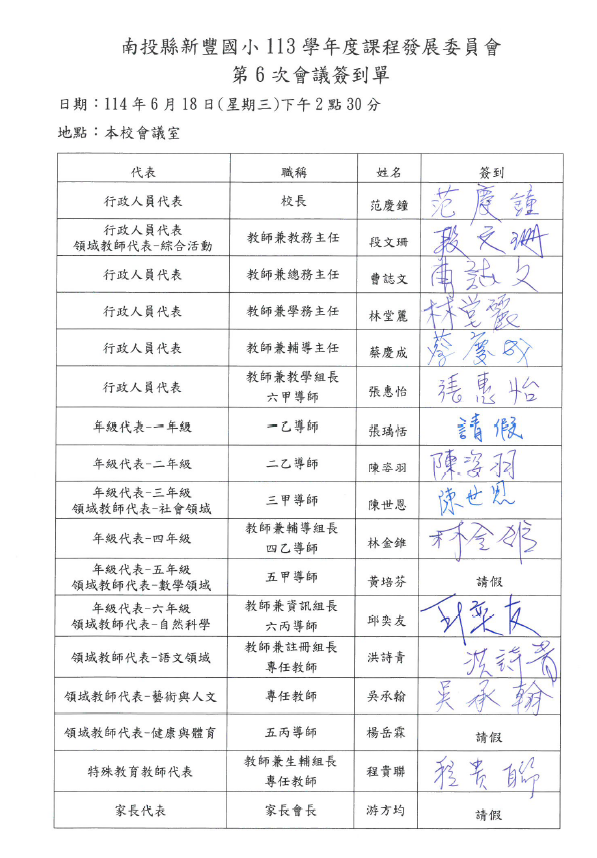 南投縣新豐國小 113 學年度課程發展委員會
第 6 次會議簽到單
日期：114 年 6 月 18 日(星期三)下午 2 點 30 分
地點：本校會議室
代表 職稱 姓名 簽到
行政人員代表 校長 范慶鐘 范慶鐘
行政人員代表
領域教師代表-綜合活動 教師兼教務主任 段文珊 段文珊
行政人員代表 教師兼總務主任 曹誌文 曹誌文
行政人員代表 教師兼學務主任 林堂麗 林堂麗
行政人員代表 教師兼輔導主任 蔡慶成 蔡慶成
行政人員代表 教師兼教學組長
六甲導師 張惠怡 張惠怡
年級代表-一年級 一乙導師 張瑀恬 請假
年級代表-二年級 二乙導師 陳姿羽 陳姿羽
年級代表-三年級
領域教師代表-社會領域 三甲導師 陳世恩 陳世恩
年級代表-四年級 教師兼輔導組長
四乙導師 林金維 林金維
年級代表-五年級
領域教師代表-數學領域 五甲導師 黃培芬 請假
年級代表-六年級
領域教師代表-自然科學 教師兼資訊組長
六丙導師 邱奕友 邱奕友
領域教師代表-語文領域 教師兼註冊組長
專任教師 洪詩青 洪詩青
領域教師代表-藝術與人文 專任教師 吳承翰 吳承翰
領域教師代表-健康與體育 五丙導師 楊岳霖 請假
特殊教育教師代表 教師兼生輔組長
專任教師 程貴聯 程貴聯
家長代表 家長會長 游方均 請假